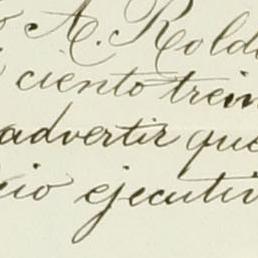 A. Rold
ciento trein
advertir que
cio ejecuti